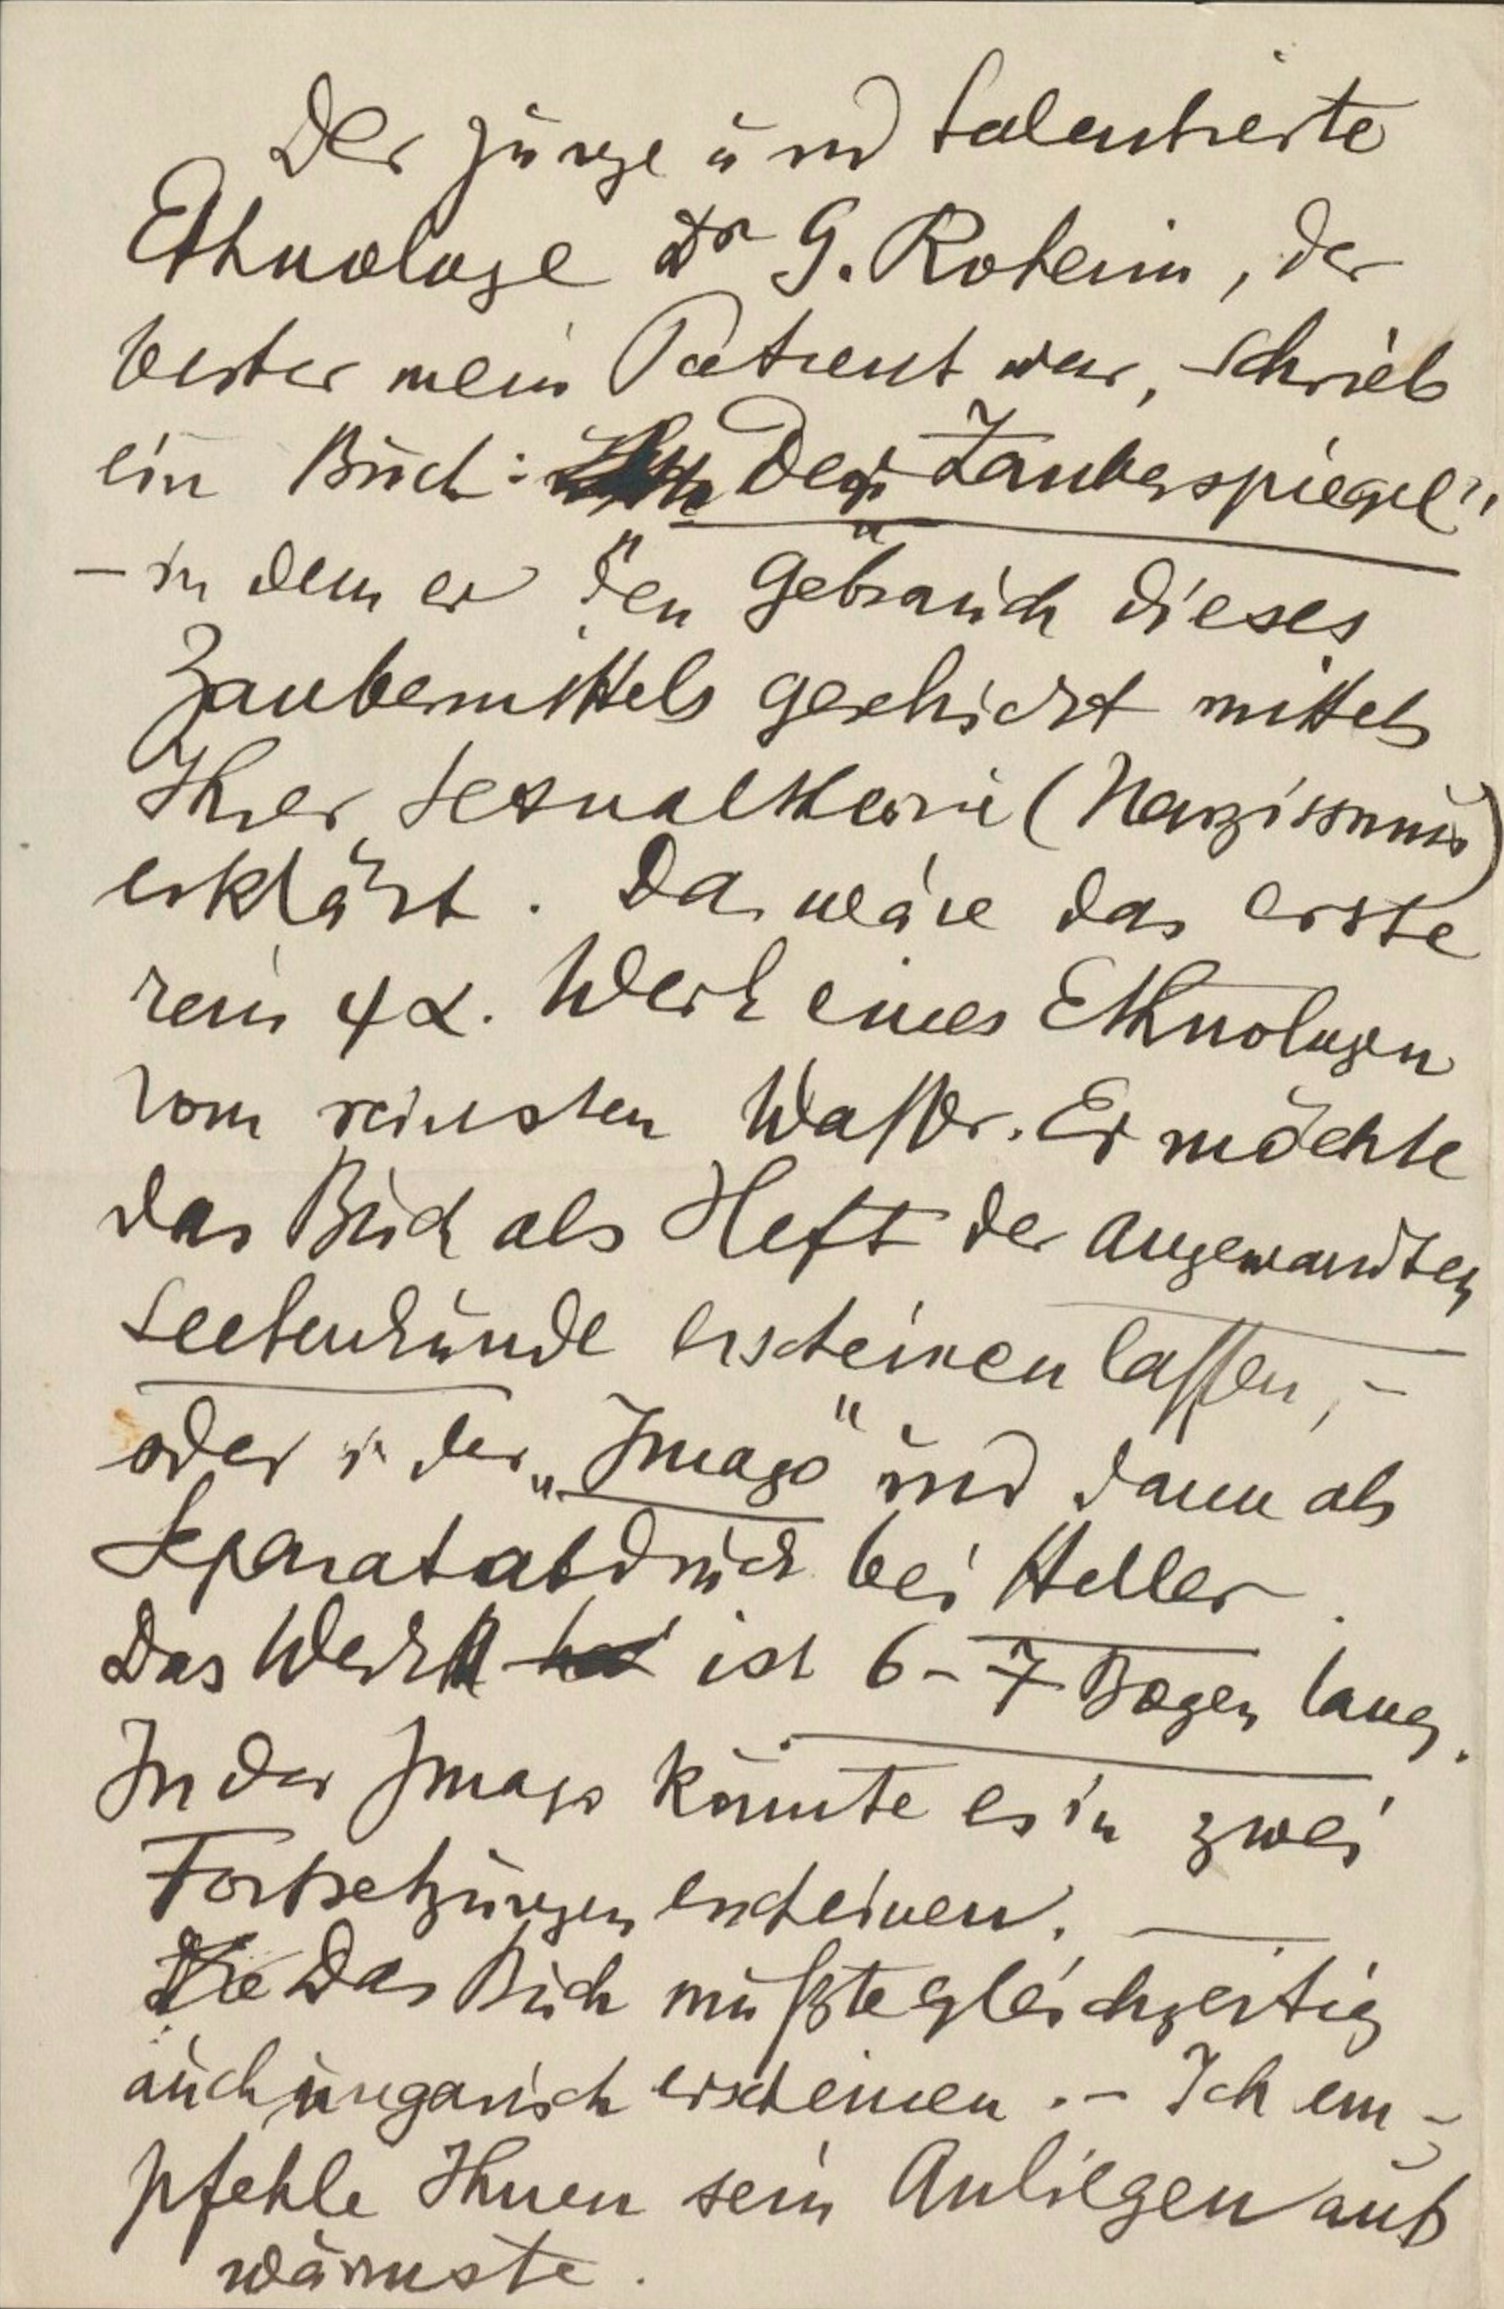 Der junge und talentierte
Ethnologe Dr G. Roheim, der
bester mein Patient war, schrieb
ein Buch: Der Zauberspiegel"
– in dem er den Gebrauch dieses
Zaubermittels geschickt mittels
Ihrer Sexualtheorie (Narzissmus)
erklärt. Das wäre das erste
rein ψα. Werk eines Ethnologen
vom reinsten Wasser. Er möchte
das Buch als Heft der angewandten
Seelenkunde erscheinen lassen, –
oder in der „Imago" und dann als
Separatabdruck bei Heller.
Das Werk ist 6–7 Bogen lang.
In der Imago könnte es in zwei
Fortsetzungen erscheinen.
Die Das Buch müßte gleichzeitig
auch ungarisch erscheinen. – Ich em-
pfehle Ihnen sein Anliegen aufs
wärmste.